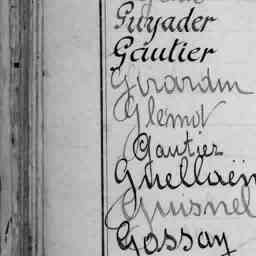 Guyader
Gautier
Girardin
Glémot
Gautier
Guellaën
Guisnel
Gossay